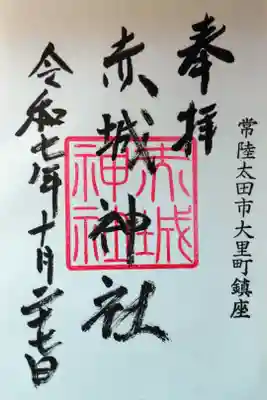 奉拝
常陸太田市大里町鎮座
赤城神社
赤城
神社
令和七年十月二十七日